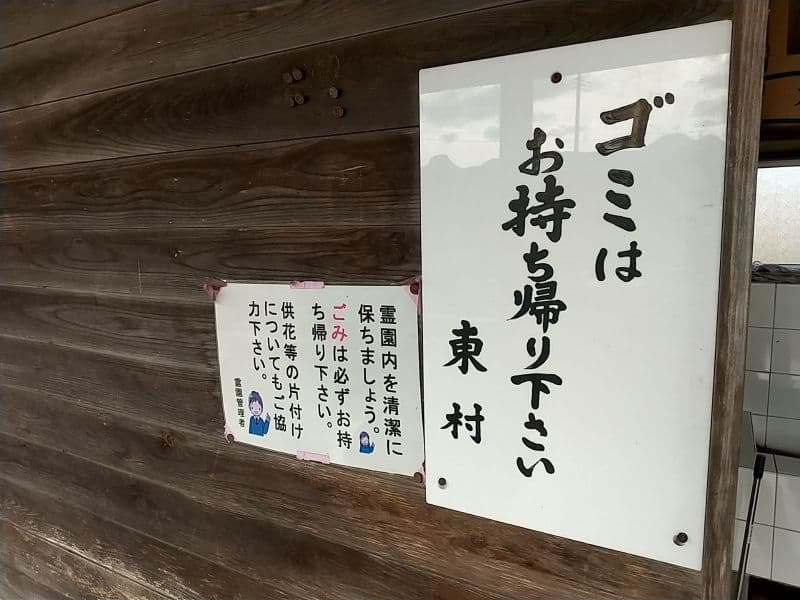 ゴミは
お持ち帰り下さい
東村
霊園内を清潔に
保ちましょう。
ごみは必ずお持
ち帰り下さい。
供花等の片付け
についてもご協
力下さい。
霊園管理者